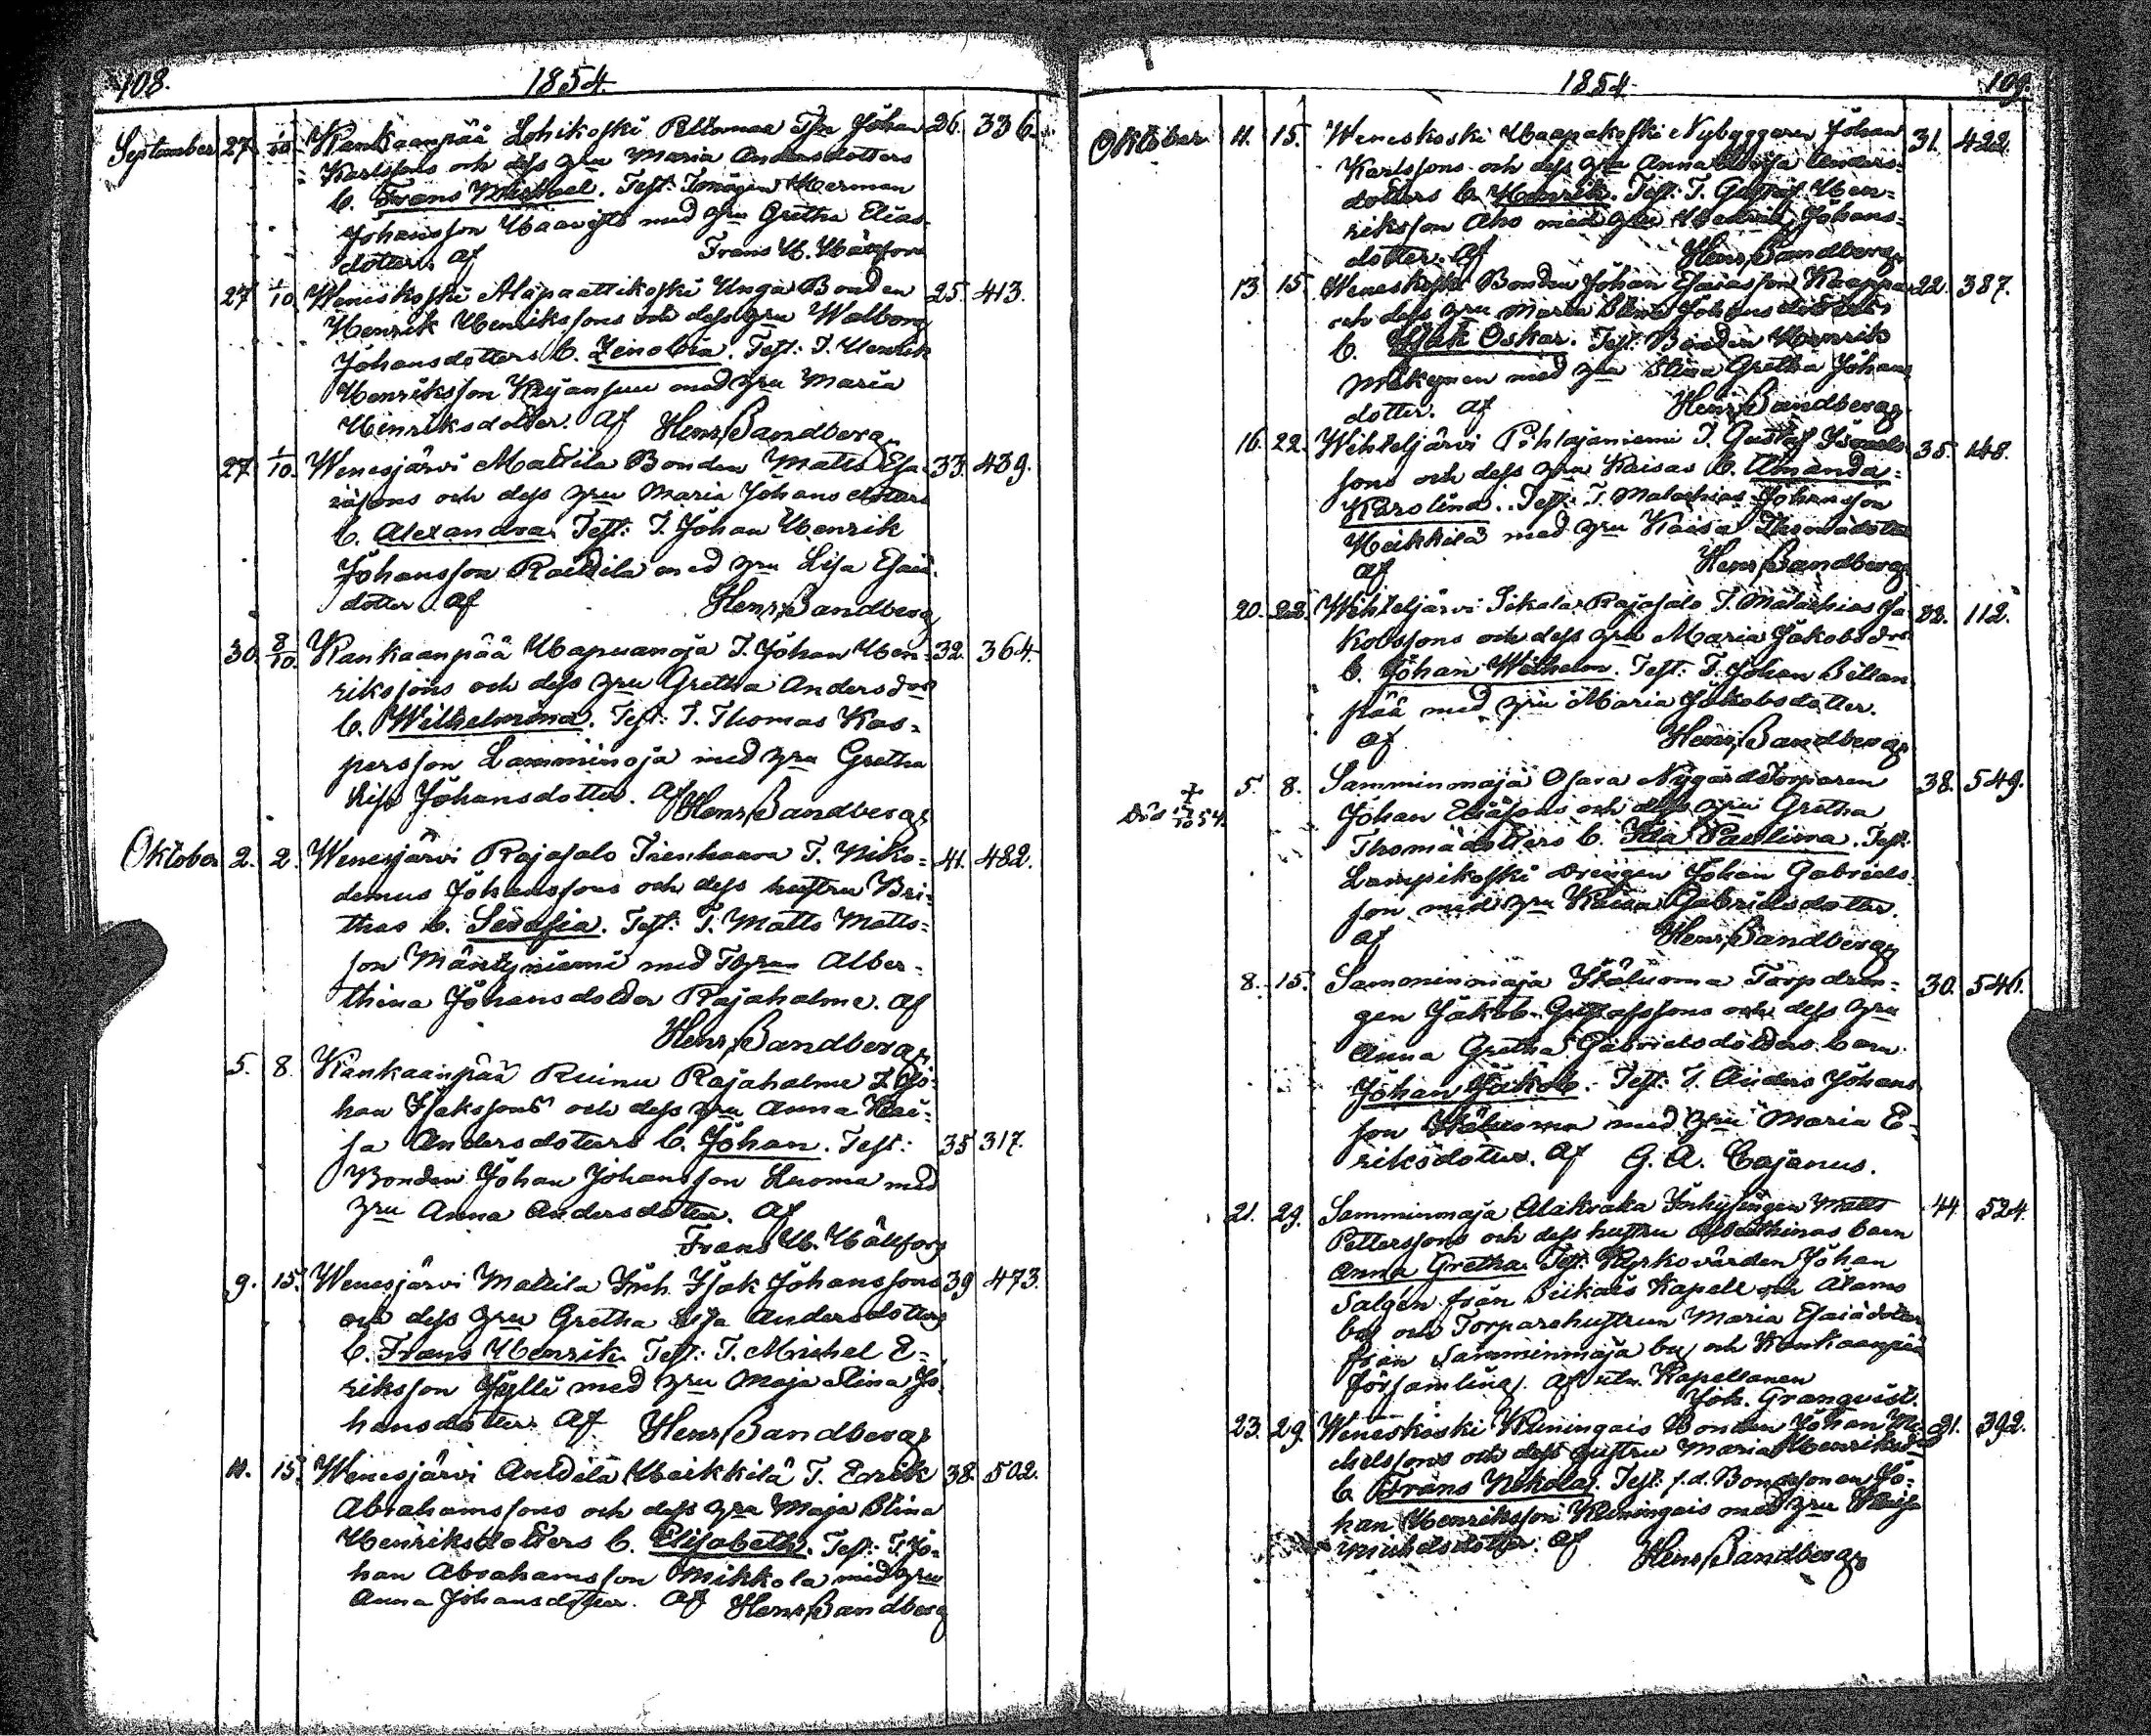 108.
1854.
September 27. 1/10 Kankaanpää Lohikoski Rellumaa Tpr Johan 26. 336.
Karlssons och dess hru Maria Andersdotters
b. Frans Mikael. Test: Herman
Johansson Haavisto med hru Gretha Elias-
dotter. af Frans H. Hällfors
27 1/10 Weneskoski Alapaattikoski Unga Bonden 25. 413.
Henrik Henrikssons och dess hru Walborg
Johansdotters b. Zenobia. Test: T. Henrik
Henriksson Myjansuu med hru Maria
Henriksdotter. af Henr. Sandberg
27 1/10 Wenesjärvi Mattila Bonden Matts Esa- 33. 439.
iæsons och dess hru Maria Johansdotters
b. Alexandra. Test: T. Johan Henrik
Johansson Raidila med hru Lisa Esaiæ-
dotter. af Henr. Sandberg
30. 8/10. Kankaanpää Hapuanoja T. Johan Hen- 32. 364.
rikssons och dess hru Gretha Andersdrs
b. Wilhelmina. Test: T. Thomas Kas-
persson Lamminoja med hru Gretha
Lisa Johansdotter. af Henr. Sandberg
Oktober 2. 2. Wenesjärvi Rajasalo Tienhaara T. Niko- 41. 482.
demus Johanssons och dess hustru Bri-
thas b. Serafia. Test: T. Matts Matts-
son Mäntyniemi med Thrun Alber-
thina Johansdotter Rajahalme. af
Henr. Sandberg
5. 8. Kankaanpää Ruinu Rajahalme T. Jo-
han Isakssons och dess hru Anna Kai-
sa Andersdotters b. Johan. Test: 35 317.
Bonden Johan Johansson Luoma med
hru Anna Andersdotter. af
Frans H. Hällfors
9. 15. Wenesjärvi Mattila Inh. Isak Johanssons 39 473.
och dess hru Gretha Lisa Andersdotters
b. Frans Henrik. Test: T. Michel E-
riksson Jylli med hru Maja Stina Jo-
hansdotter. af Henr. Sandberg
11. 15. Wenesjärvi Anttila Heikkilä T. Erik 38. 502.
Abrahamssons och dess hru Maja Stina
Henriksdotters b. Elisabeth. Test: T. Jo-
han Abrahamsson Mikkola med hru
Anna Johansdotter. af Henr. Sandberg
1854.
109.
Oktober 11. 15. Weneskoski Haapakoski Nybyggaren Johan 31. 422.
Karlssons och dess hru Anna Lovisa Anders-
dotters b. Henrik. Test: T. Gustaf Hen-
riksson Aho med hru Hedvig Johans-
dotter. af Henr. Sandberg
13. 15. Weneskoski Bonden Johan Esaiasson Kaappa 22. 387.
och dess hru Maria Stina Johansdotters
b. Isak Oskar. Test: Bonden Henrik
Mäkynen med hru Stina Gretha Johans-
dotter. af Henr. Sandberg
16. 22. Wihteljärvi Pihlajaniemi T. Gustaf Isaaks- 35. 148.
sons och dess hru Kaisas b. Amanda
Karolina. Test: T. Malachias Johansson
Heikkilä med hru Kaisa Thomædotter
af Henr. Sandberg
20. 22. Wihteljärvi Sikala Rajasalo T. Malachias Ja- 32. 112.
kobssons och dess hru Maria Jakobsdrs
b. Johan Wilhelm. Test: T. Johan Sillan-
pää med hru Maria Jakobsdotter.
af Henr. Sandberg
+ 5. 8. Samminmaja Osara Nygårds Torparen 38. 549.
Johan Eliæsons och dess hru Gretha
Thomædotters b. Ida Paulina. Test:
Lampikoski Drängen Johan Gabriels-
son med hru Kaisa Gabrielsdotter.
af Henr. Sandberg
8. 15. Samminmaja Isoluoma Torpdrän- 30. 546.
gen Jakob Gustafssons och dess hru
Anna Gretha Gabrielsdotters barn
Johan Jakob. Test: T. Anders Johans-
son Isoluoma med hru Maria E-
riksdotter. af G. A. Cajanus.
21. 29. Samminmaja Alakraka Inhysingen Matts 44. 524.
Petterssons och dess hustru Albertinas barn
Anna Gretha. Test: Kyrkovärden Johan
Salgén från Siikais Kapell och Alams
by och Torparehustrun Maria Esaiædotter
från Samminmaja by och Kankaanpää
församling. af Kapellanen
Joh. Granqvist.
23. 29. Weneskoski Kiviningais Bonden Johan Mi- 21. 392.
chelssons och dess hustru Maria Henriksdrs
b. Frans Nikolai. Test: f.d. Bondesonen Jo-
han Henriksson Kiviningais med hru Kaisa
Michelsdotter. af Henr. Sandberg